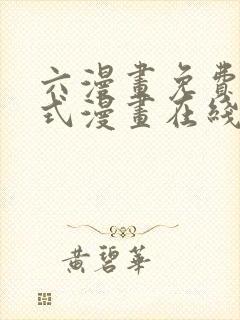 六漫畫免費
式漫畫在綫
黃碧華